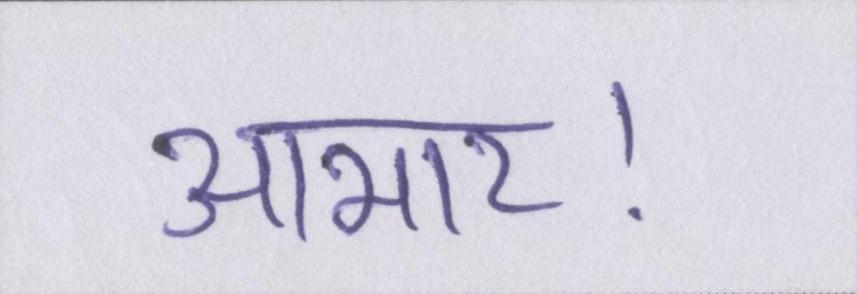 आभार!